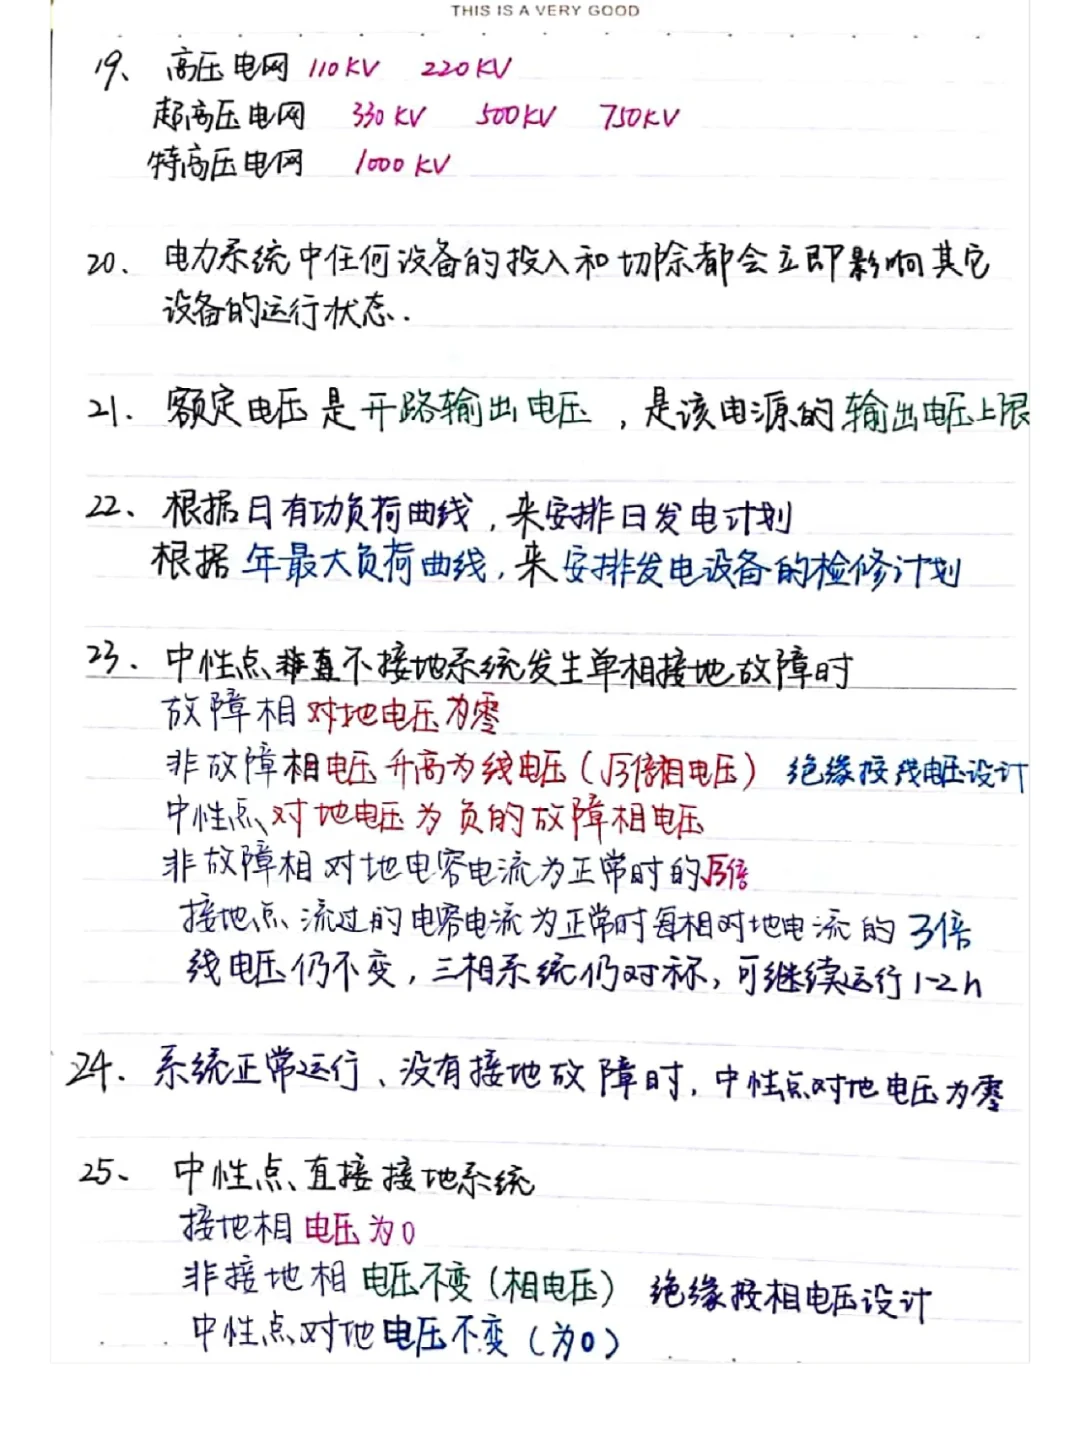 THIS IS A VERY GOOD
19、高压电网 110KV 220KV
超高压电网 330KV 500KV 750KV
特高压电网 1000KV
20、电力系统中任何设备的投入和切除都会立即影响其它
设备的运行状态.
21、额定电压是开路输出电压，是该电源的输出电压上限
22、根据日有功负荷曲线，来安排日发电计划
根据年最大负荷曲线，来安排发电设备的检修计划
23、中性点不接地系统发生单相接地故障时
故障相对地电压为零
非故障相电压升高为线电压（√3倍相电压） 绝缘按线电压设计
中性点对地电压为负的故障相电压
非故障相对地电容电流为正常时的√3倍
接地点流过的电容电流为正常时每相对地电流的3倍
线电压仍不变，三相系统仍对称，可继续运行1-2h
24、系统正常运行、没有接地故障时，中性点对地电压为零
25、中性点直接接地系统
接地相电压为0
非接地相电压不变（相电压） 绝缘按相电压设计
中性点对地电压不变（为0）